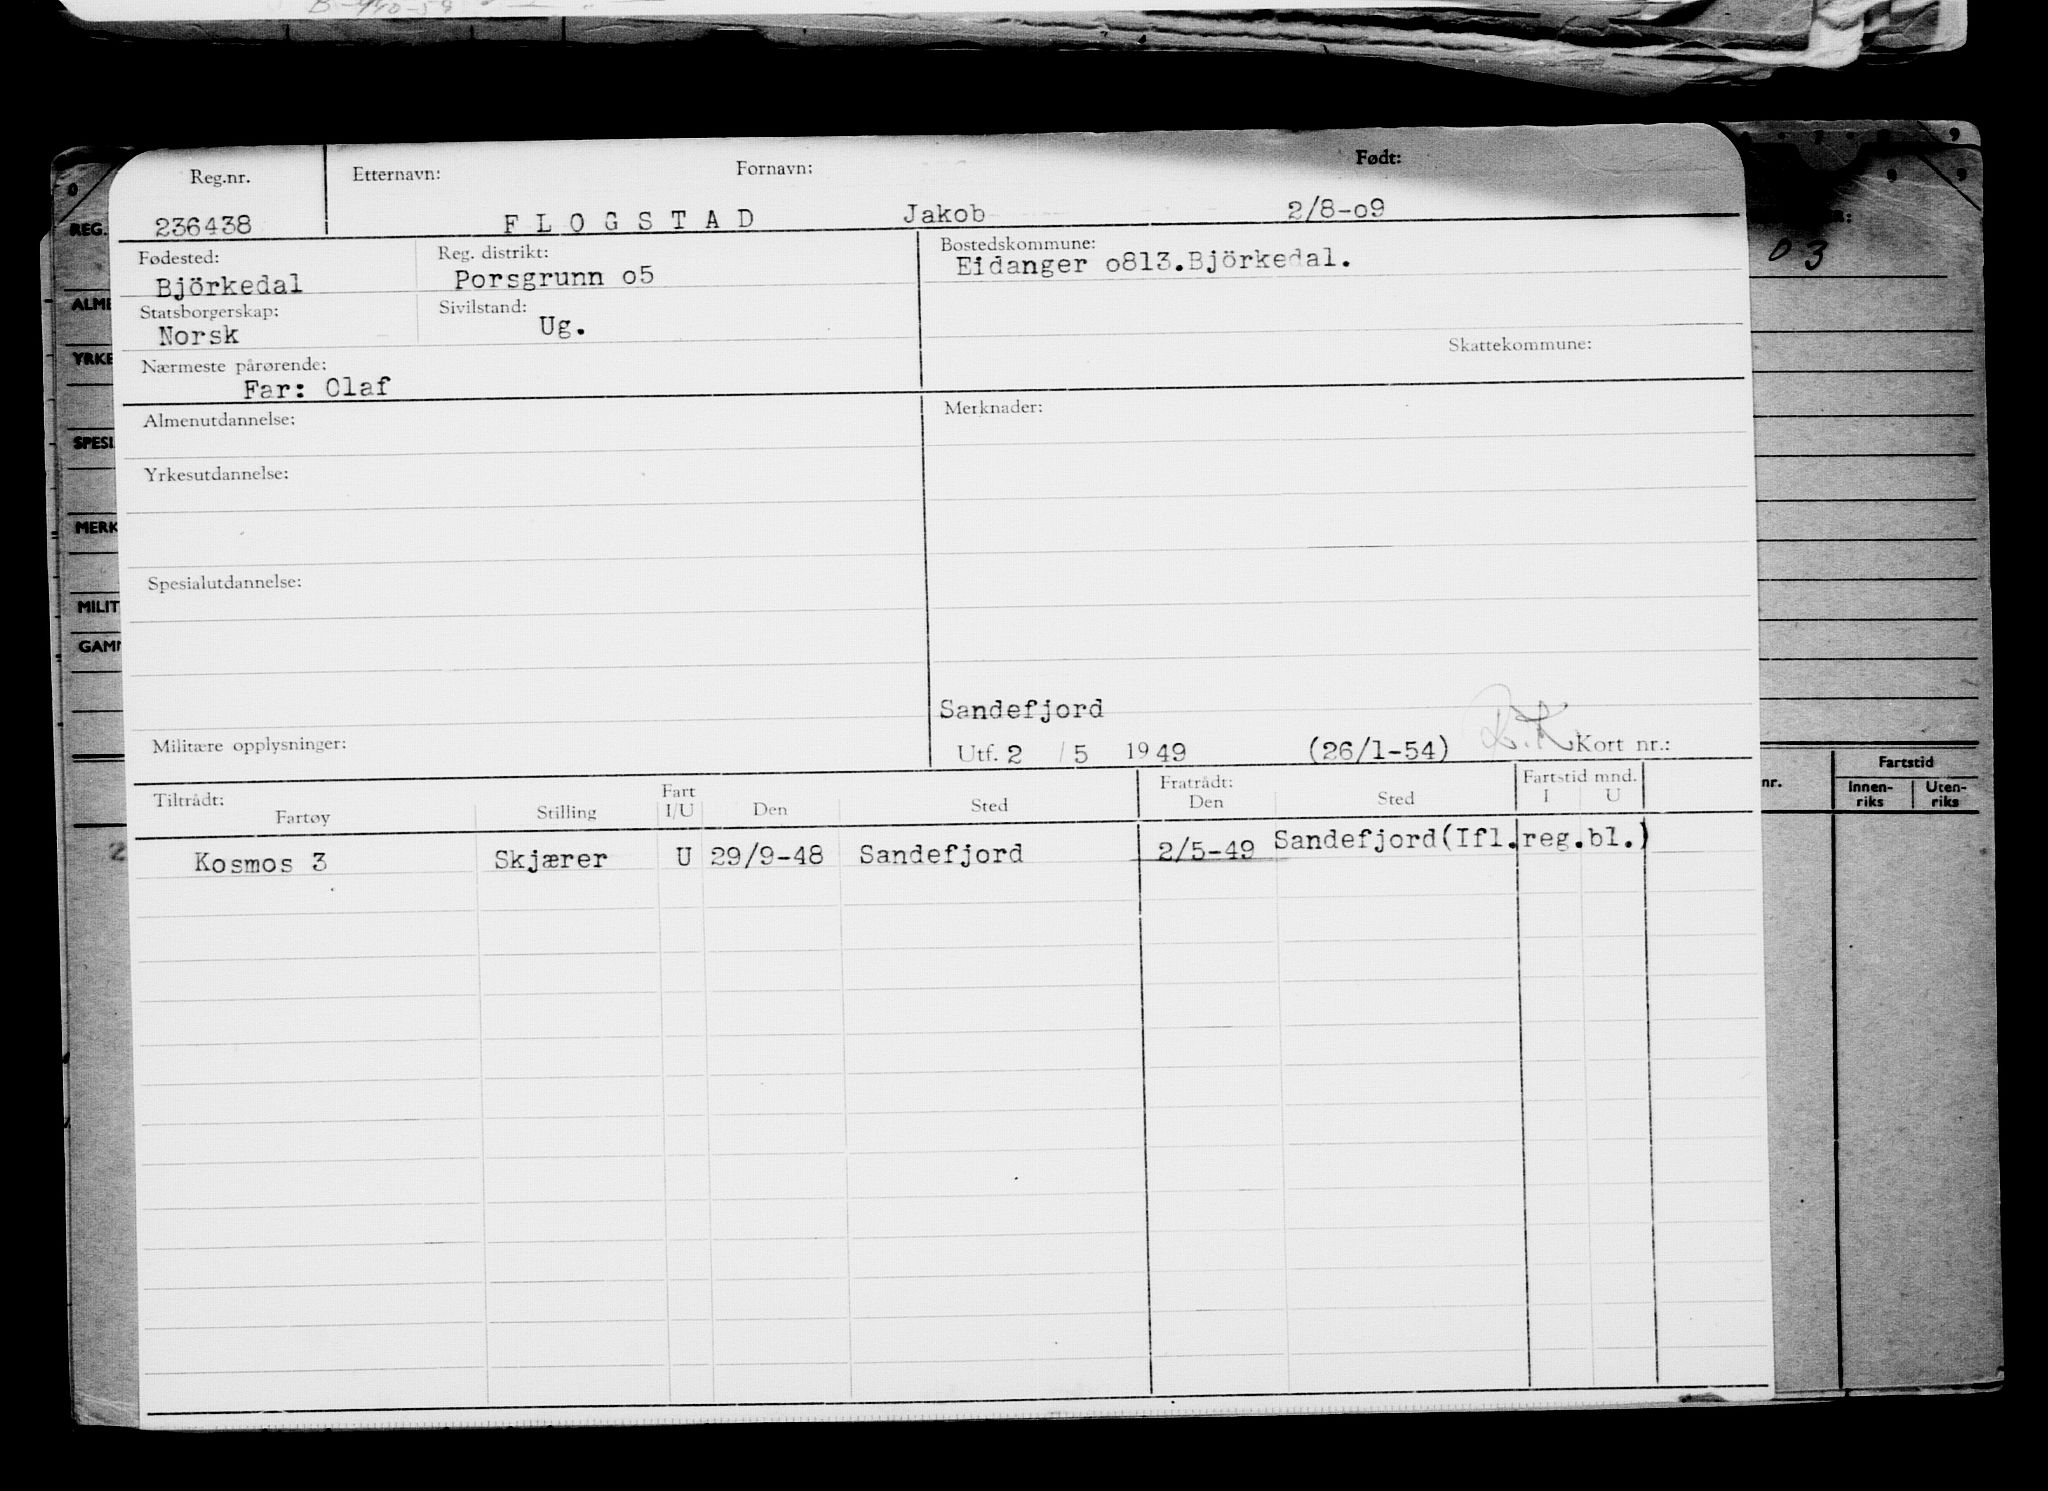 B-440-58
Reg.nr. Etternavn: Fornavn: Født:
236438 F L O G S T A D Jakob 2/8-o9
Fødested: Reg. distrikt: Bostedskommune:
Björkedal Porsgrunn o5 Eidanger o813.Björkedal.
Statsborgerskap: Sivilstand:
Norsk Ug.
Skattekommune:
Nærmeste pårørende:
Far: Olaf
Almenutdannelse: Merknader:
Yrkesutdannelse:
Spesialutdannelse:
Sandefjord
Militære opplysninger: Utf. 2 / 5 1949 (26/1-54) Kort nr.:
Tiltrådt: Fart Fratrådt: Fartstid mnd.
Fartøy Stilling I/U Den Sted Den Sted I U
Kosmos 3 Skjærer U 29/9-48 Sandefjord 2/5-49 Sandefjord(Ifl.reg.bl.)
0
REG.
ALME
YRKE
SPESI
MERK
MILIT
GAMN
9
9 9
R:
03
nr. Fartstid
Innen-
riks
Uten-
riks
2